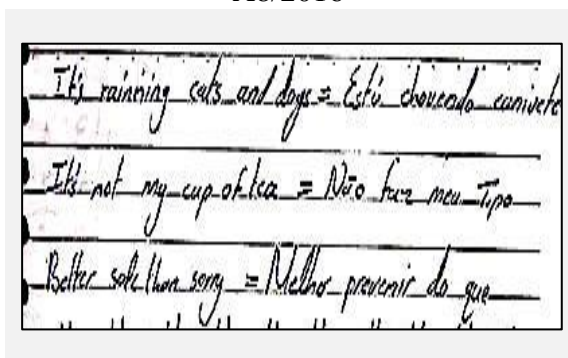 It's rainning cats and dogs = Está chovendo canivete
It's not my cup of tea = Não faz meu Tipo
Better safe than sorry = Melhor prevenir do que